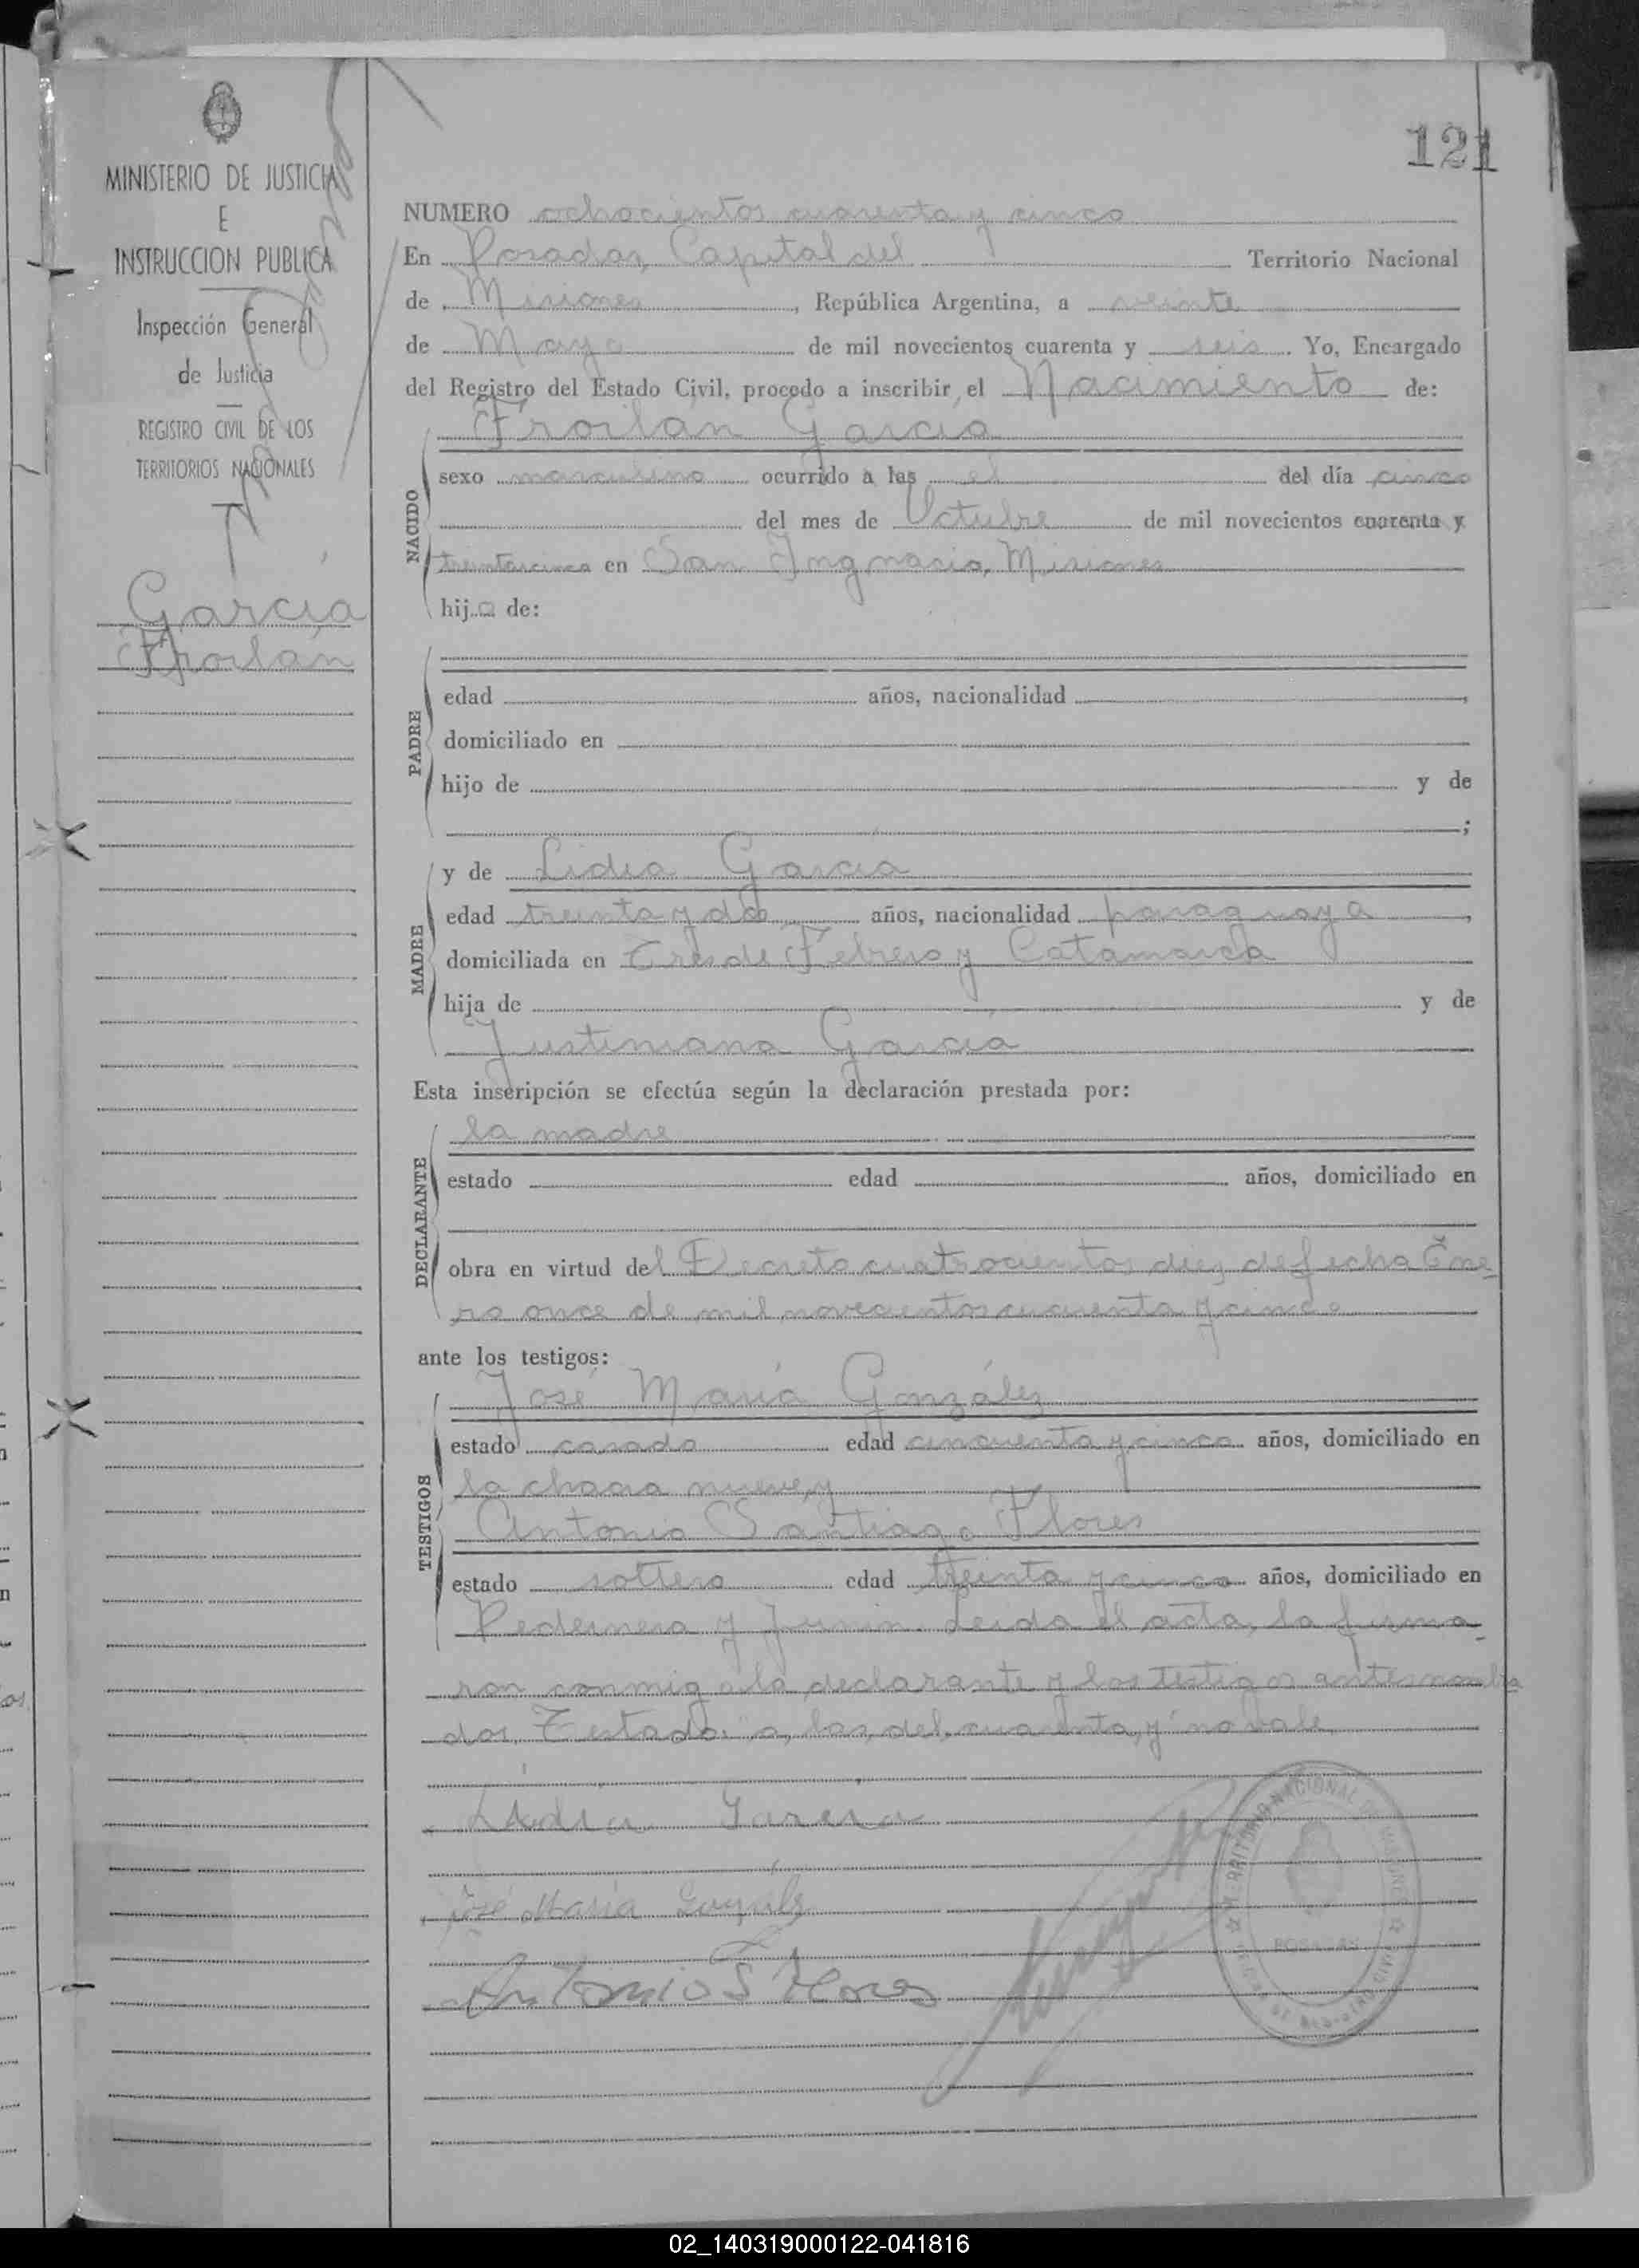 121
MINISTERIO DE JUSTICIA
E
INSTRUCCION PUBLICA
Inspección General
de Justicia
REGISTRO CIVIL DE LOS
TERRITORIOS NACIONALES
García
Froilán
NUMERO ochocientos cuarenta y cinco
En Posadas, Capital del Territorio Nacional
de Misiones, República Argentina, a veinte
de Mayo de mil novecientos cuarenta y seis. Yo, Encargado
del Registro del Estado Civil, procedo a inscribir el Nacimiento de:
Froilán García
NACIDO
sexo masculino ocurrido a las el del día cinco
del mes de Octubre de mil novecientos cuarenta y
treintaicinco en San Ingnacio, Misiones
hijo de:
PADRE
edad años, nacionalidad ,
domiciliado en
hijo de y de
;
MADRE
y de Lidia García
edad treinta y dos años, nacionalidad paraguaya,
domiciliada en Tres de Febrero y Catamarca
hija de y de
Justiniana García
Esta inscripción se efectúa según la declaración prestada por:
DECLARANTE
la madre
estado edad años, domiciliado en
obra en virtud del Decreto cuatrocientos diez de fecha Ene-
ro once de mil novecientos cuarenta y cinco
ante los testigos:
TESTIGOS
José María González
estado casado edad cincuenta y cinco años, domiciliado en
la chacra nueve, y
Antonio Santiago Flores
estado soltero edad treinta y cinco años, domiciliado en
Pedernera y Junin. Leida el acta, la firma-
ron conmigo la declarante y los testigos antes nombra
dos. Testado: "a, las, del, cuarenta, y" no vale
Lidia Garcia
José María González
Antonio S Flores
TERRITORIO NACIONAL DE MISIONES
POSADAS
02_140319000122-041816